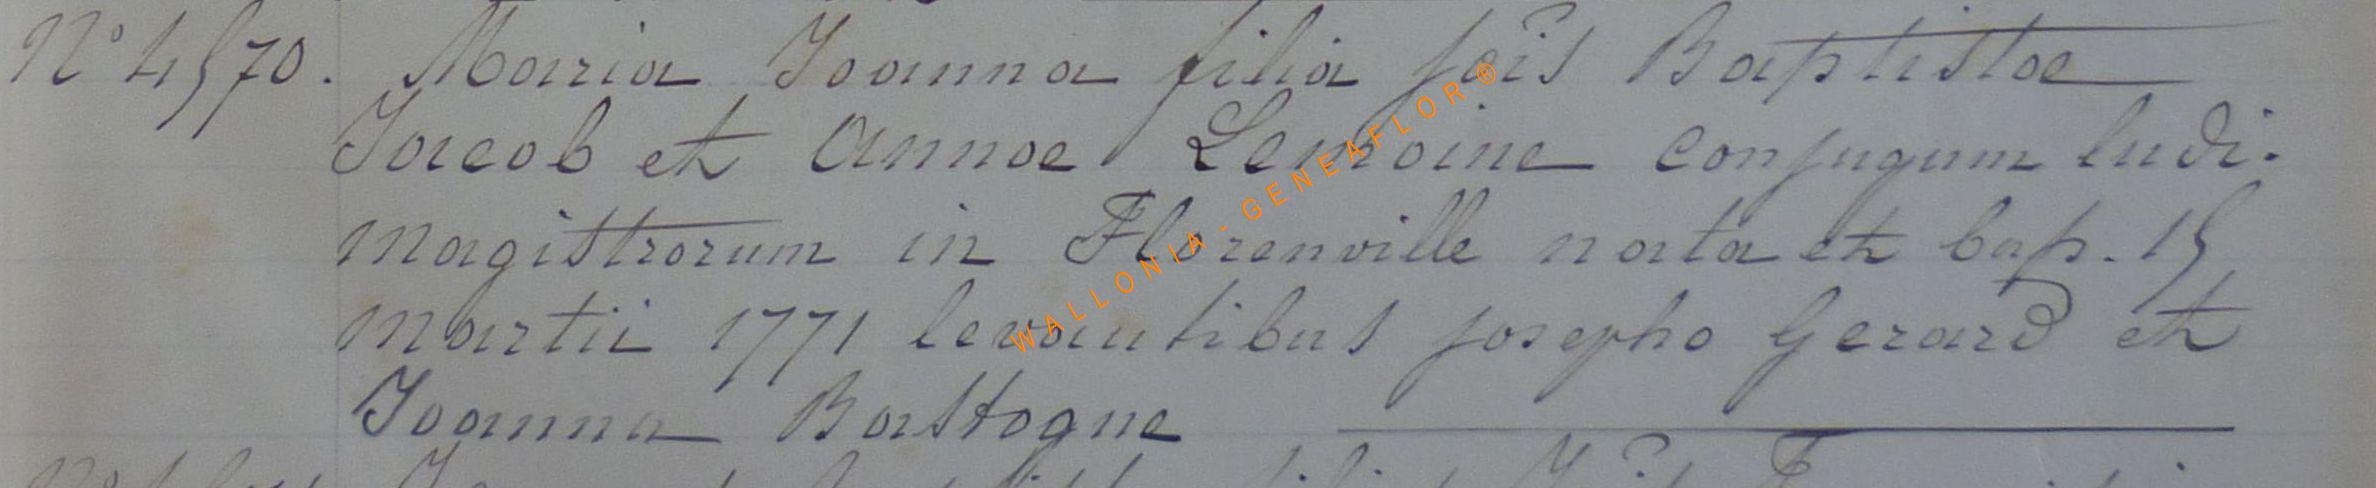 N° 4570. Maria Joanna filia jōis Baptistae
Jacob et Annae Lemoine conjugum ludi-
magistrorum in Florenville nata et bap. 15
martii 1771 levantibus josepho Gerard et
Joanna Bastogne
WALLONIA-GENEAFLOR®